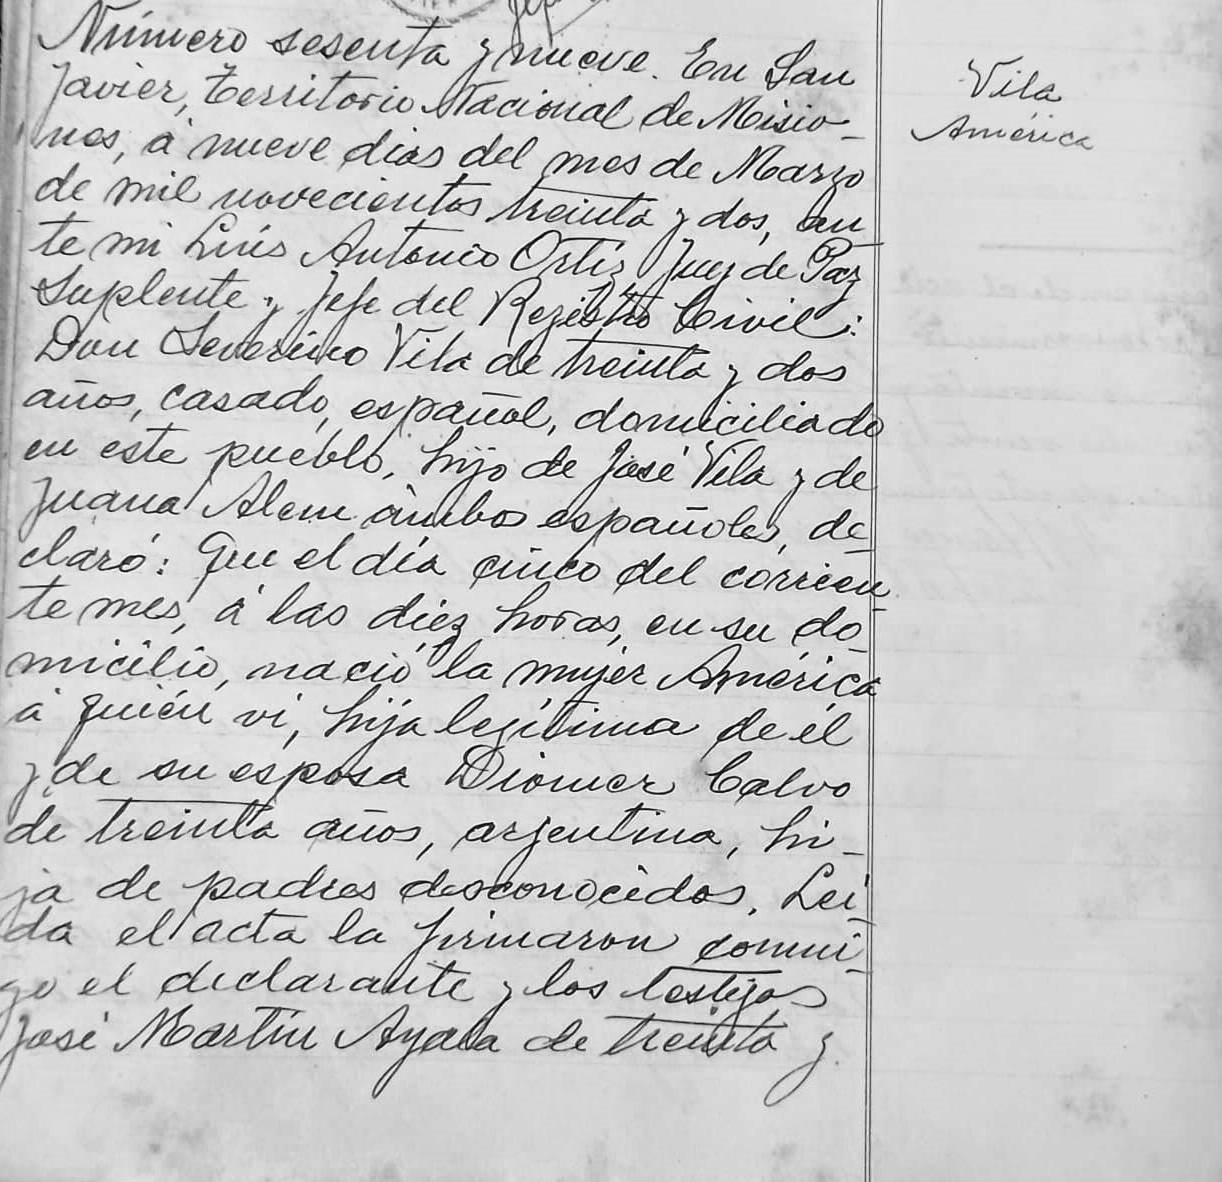 Número sesenta y nueve. En San
Javier, Territorio Nacional de Misio-
nes, á nueve dias del mes de Marzo
de mil novecientos treinta y dos, an-
te mi Luis Antonio Ortíz Juez de Paz
Suplente y Jefe del Rejistro Civil:
Don Severino Vila de treinta y dos
años, casado, español, domiciliado
en este pueblo, hijo de José Vila y de
Juana Alem ámbos españoles, de-
claró: Que el día cinco del corrien-
te mes, á las diez horas, en su do-
micilio, nació la mujer América
á quién ví, hija legítima de él
y de su esposa Diomer Calvo
de treinta años, arjentina, hi-
ja de padres desconocidos. Leí-
da el acta la firmaron conmi-
go el declarante y los testigos
José Martín Ayala de treinta y
Vila
América